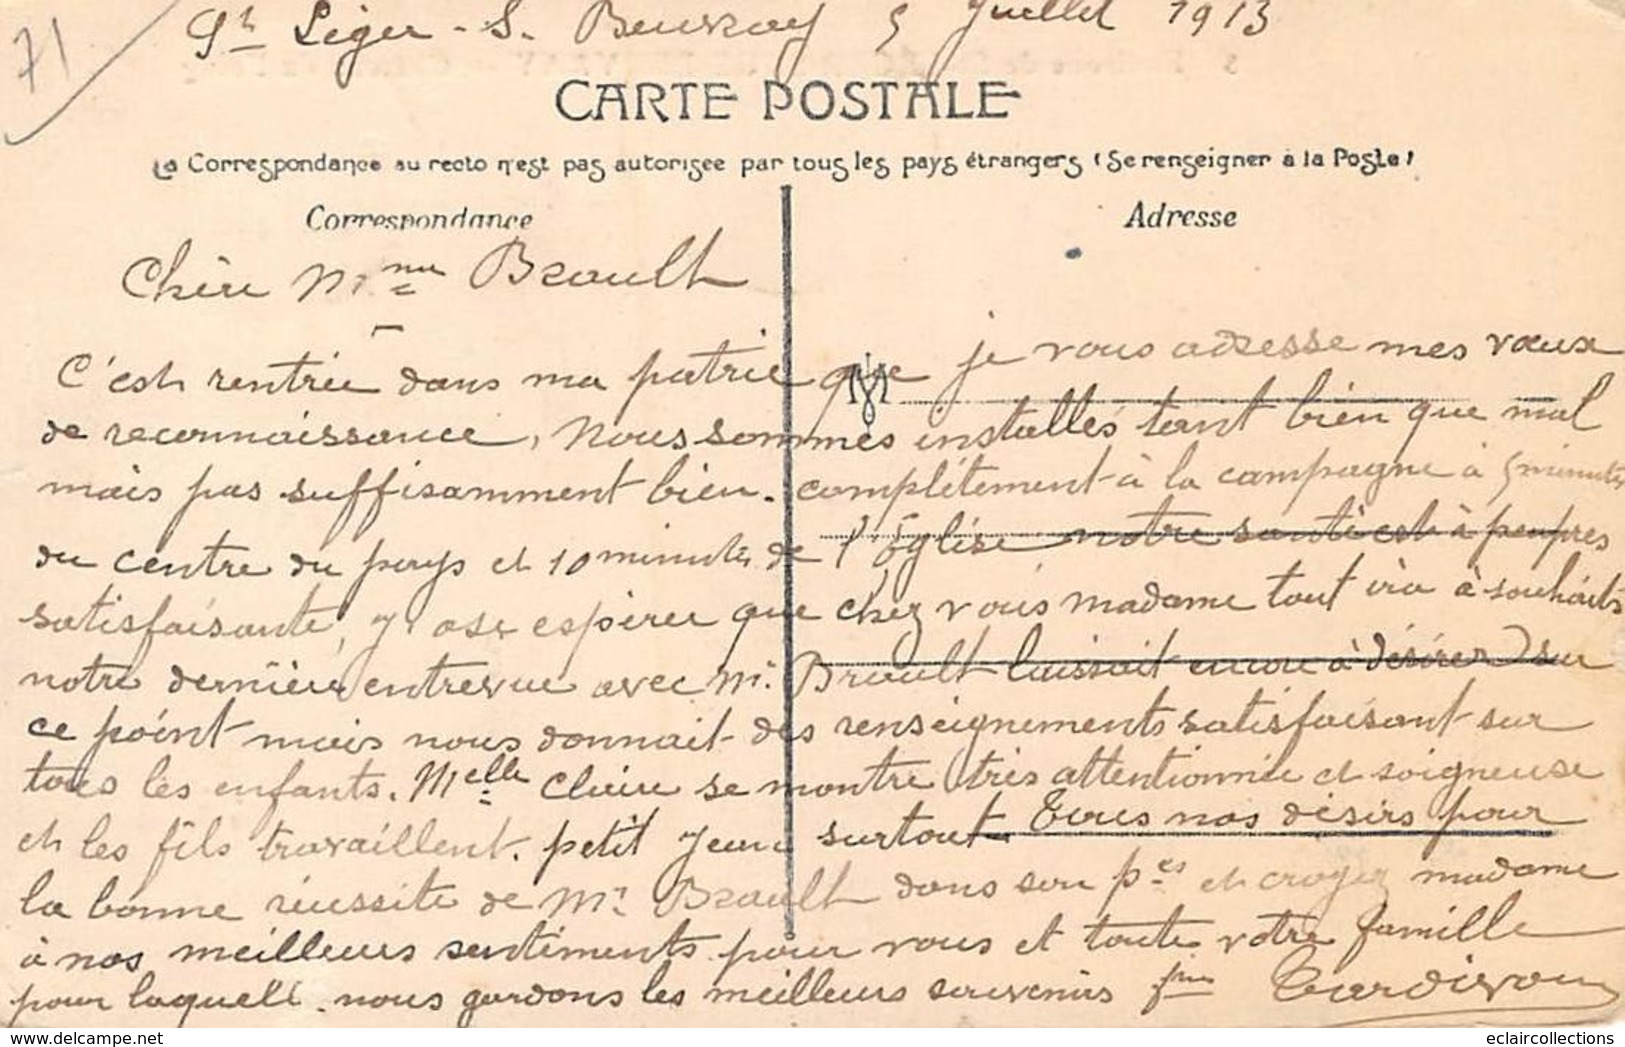 71
St Léger - S. Beuvray 5 Juillet 1913
CARTE POSTALE
La Correspondance au recto n'est pas autorisée par tous les pays étrangers (Se renseigner à la Poste)
Correspondance
Adresse
Chère Mme Brault
C'est rentrée dans ma patrie que je vous adresse mes vœux
M
de reconnaissance, Nous sommes installés tant bien que mal
mais pas suffisamment bien. complétement à la campagne à 5 minutes
du centre du pays et 10 minutes de l'Eglise notre santé est à peu près
satisfaisante, J'ose espérer que chez vous madame tout ira à souhaits
notre dernière entrevue avec Mr. Brault laissait encore à désirer sur
ce point mais nous donnait des renseignements satisfaisant sur
tous les enfants. Melle Claire se montre très attentionnée et soigneuse
et les fils travaillent. petit Jean surtout Tous nos désirs pour
la bonne réussite de Mr Brault dans son et croyez madame
à nos meilleurs sentiments pour vous et toute votre famille
pour laquell. nous gardons les meilleurs souvenirs Tardivon
www.delcampe.net
eclaircollections